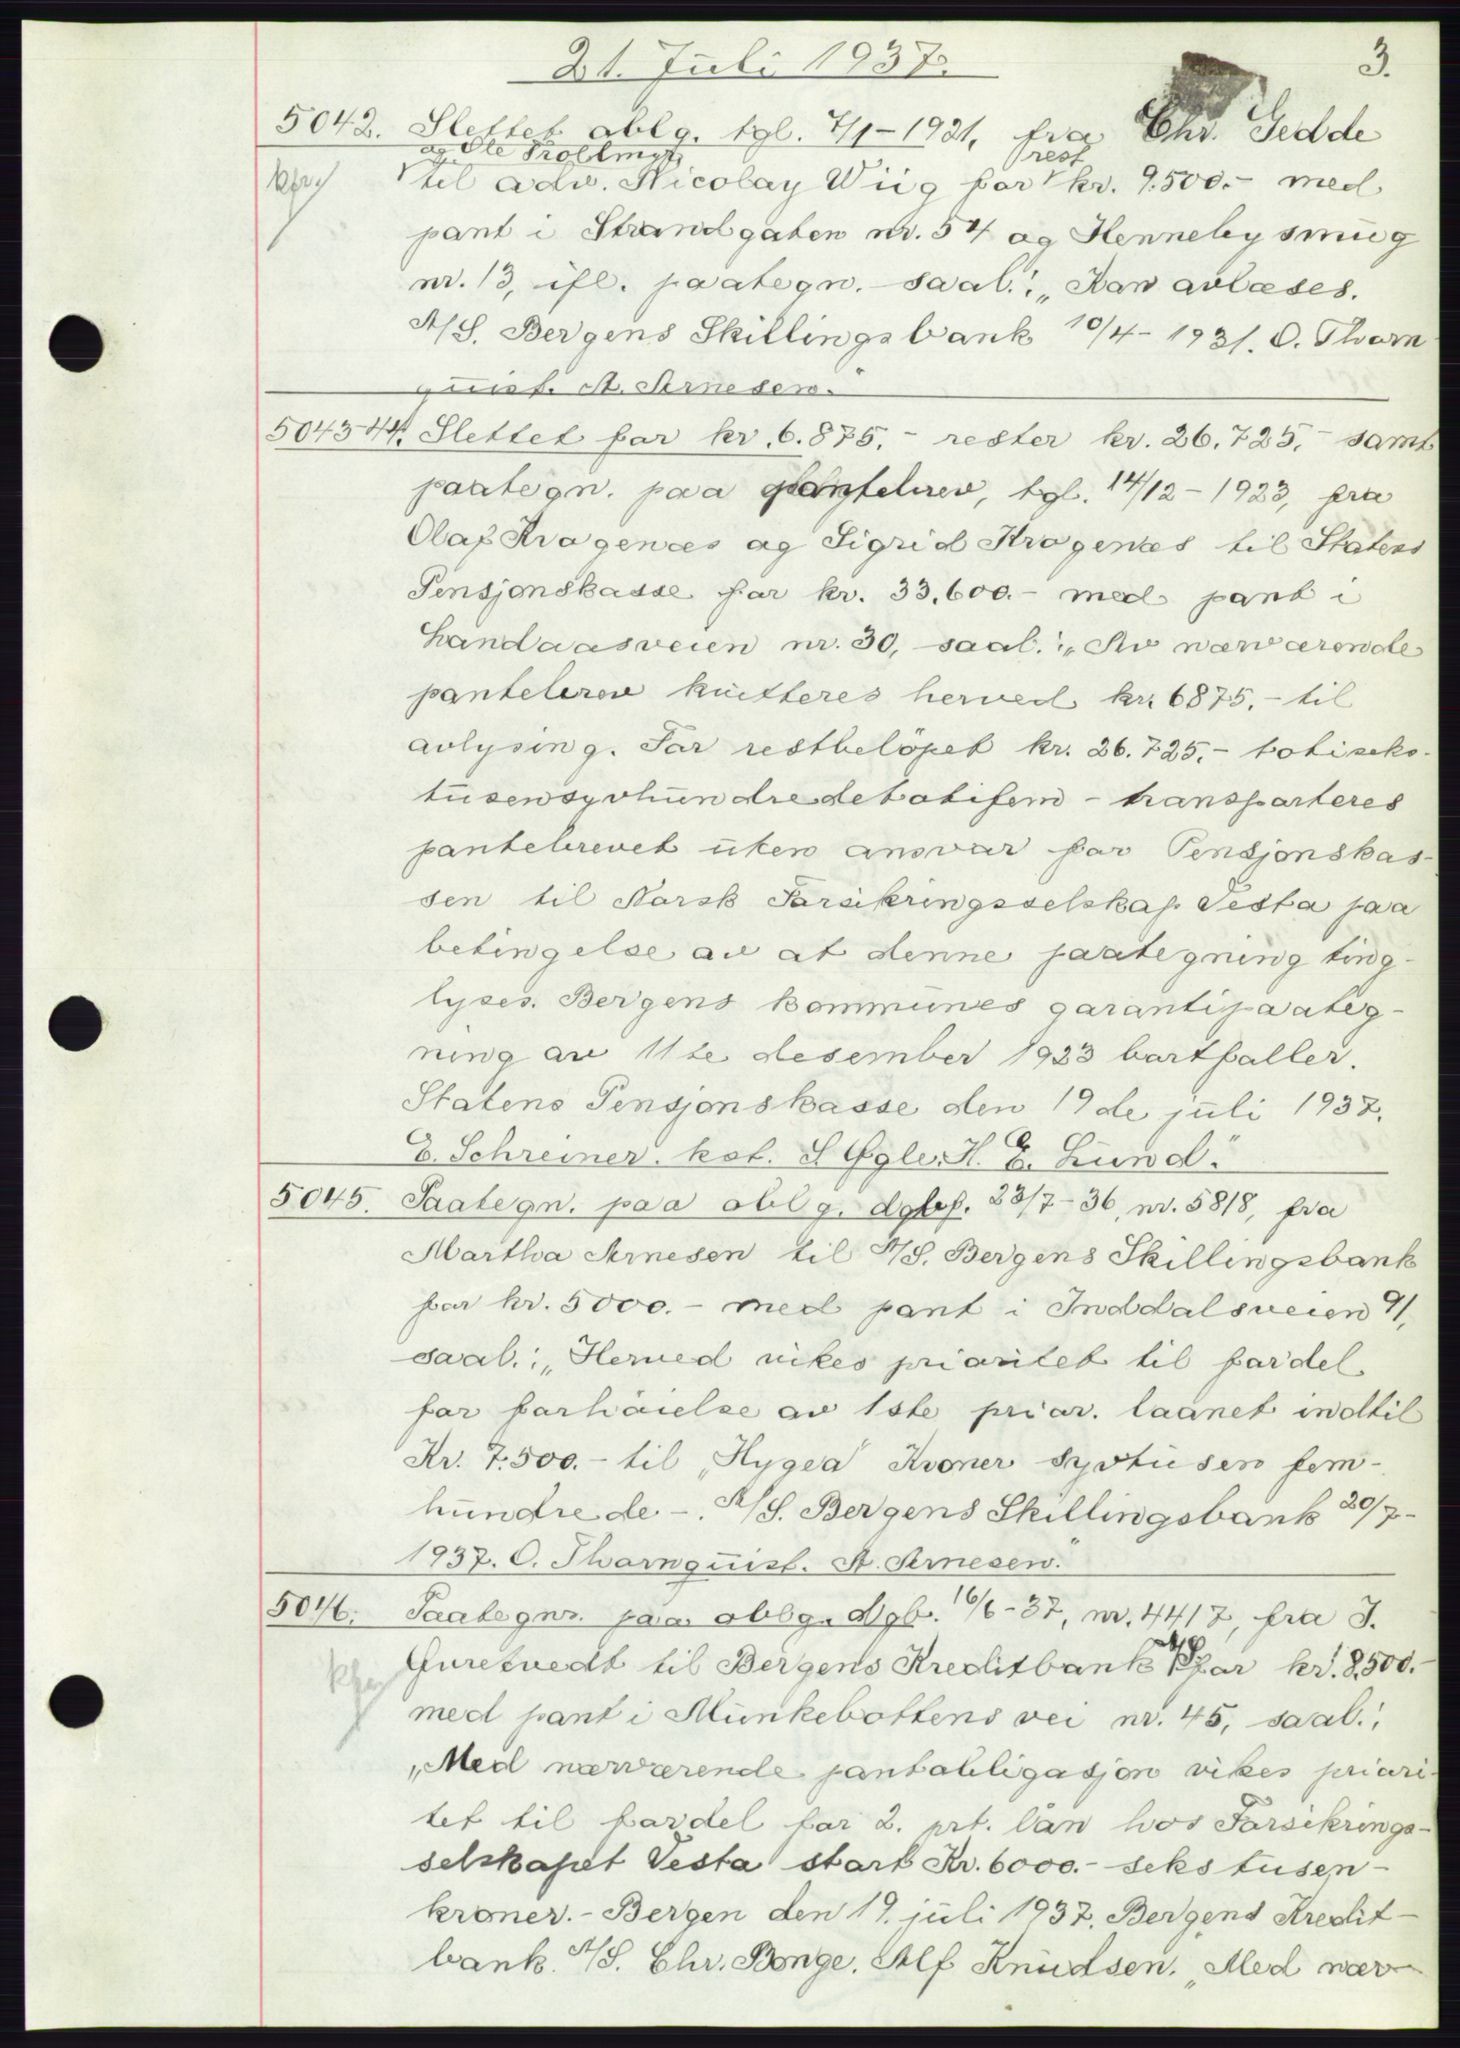 21. Juli 1937.
3.
5042. Slettet oblg. tgl. 7/1-1921, fra Chr. Gedde
og Ole Trollmyr
rest
kfr.
til adv. Nicolay Wiig for kr. 9.500.- med
pant i Strandgaten nr. 54 og Hennebysmug
nr. 13, ifl. paategn. saal.: „Kan avlæses.
A/S. Bergens Skillingsbank 10/4-1931. O. Thorn
quist. A. Arnesen."
5043-44. Slettet for kr. 6.875,- rester kr. 26.725,- samt
paategn. paa pantebrev, tgl. 14/12-1923, fra
Olaf Kragenæs og Sigrid Kragenæs til Statens
Pensjonskasse for kr. 33,600.- med pant i
Landaasveien nr. 30, saal.: „Av nærværende
pantebrev kvitteres herved kr. 6875,- til
avlysing. For restbelöpet kr. 26.725,- totiseks-
tusensyvhundredetotifem - transporteres
pantebrevet uten ansvar for Pensjonskas-
sen til Norsk Forsikringsselskap Vesta paa
betingelse av at denne paategning ting-
lyses. Bergens kommunes garantipaateg-
ning av 11te desember 1923 bortfaller.
Statens Pensjonskasse den 19de juli 1937.
E. Schreiner. kst. S. H. E. Lund."
5045. Paategn. paa oblg. dgbf. 23/7-36, nr. 5818, fra
Martha Arnesen til A/S. Bergens Skillingsbank
for kr. 5000.- med pant i Inddalsveien 91,
saal.: „Herved vikes prioritet til fordel
for forhöielse av 1ste prior. laanet indtil
Kr. 7.500.- til „Hygea" Kroner syvtusen fem-
hundrede -. A/S. Bergens Skillingsbank 20/7-
1937. O. Thornquist. A. Arnesen."
5046. Paategn. paa oblg. dgb. 16/6-37, nr. 4417, fra J.
kfr.
Guretvedt til Bergens Kreditbank A/S for kr. 8.500.-
med pant i Munkebottens vei nr. 45, saal.:
„Med nærværende pantobligasjon vikes priori-
tet til fordel for 2. prt. lån hos Forsikrings-
selskapet Vesta stort Kr. 6000.- sekstusen-
kroner.- Bergen den 19. juli 1937. Bergens Kredit-
bank A/S. Chr. Bonge. Alf Knudsen. „Med nær-